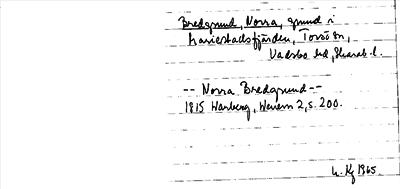 Bredgrund, Norra, grund i
Mariestadsfjärden, Torsö sn,
Vadsbo hd, Skarab. l.
-- Norra Bredgrund --
1815 Warberg, Wenern 2, s. 200.
1965.